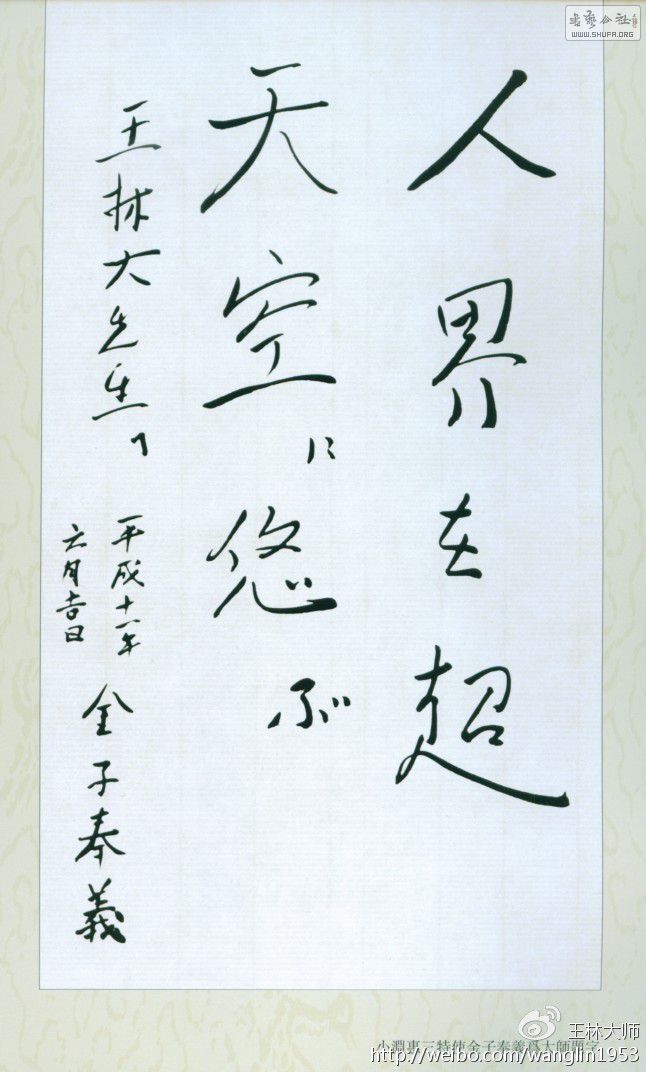 人界を超
天空に悠ぶ
王林大先生へ
平成十一年
六月吉日
金子奉義
小淵惠三特使金子奉義爲大師題字
書藝公社
WWW.SHUFA.ORG
王林大师
http://weibo.com/wanglin1953